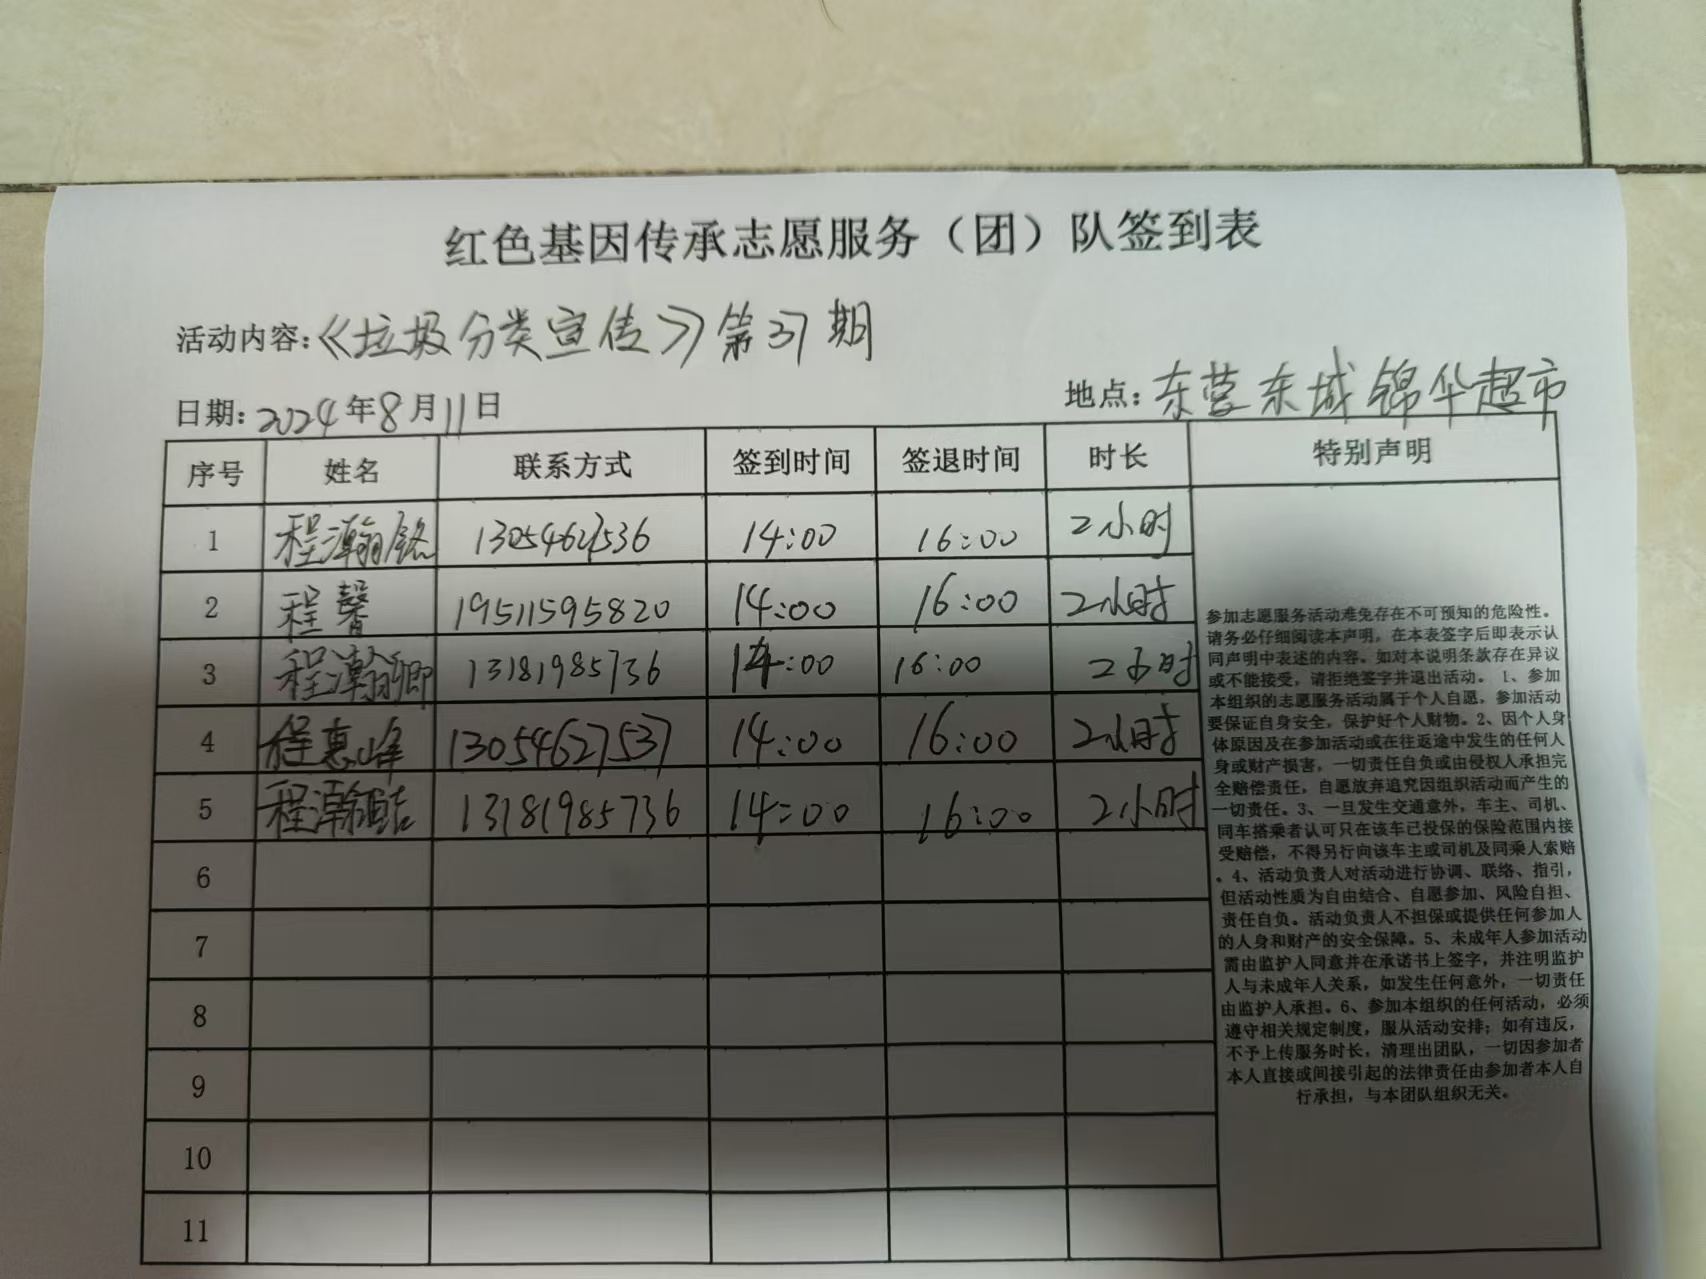 红色基因传承志愿服务（团）队签到表
活动内容：《垃圾分类宣传》第37期
日期：2024年8月11日 地点：东营东城锦华超市
序号 姓名 联系方式 签到时间 签退时间 时长 特别声明
1 程瀚铭 13054627536 14:00 16:00 2小时
2 程馨 19511595820 14:00 16:00 2小时
3 程瀚卿 13181985736 14:00 16:00 2小时
4 程惠峰 13054627537 14:00 16:00 2小时
5 程瀚 13181985736 14:00 16:00 2小时
6
7
8
9
10
11
参加志愿服务活动难免存在不可预知的危险性。
请务必仔细阅读本声明，在本表签字后即表示认
同声明中表述的内容。如对本说明条款存在异议
或不能接受，请拒绝签字并退出活动。1、参加
本组织的志愿服务活动属于个人自愿，参加活动
要保证自身安全，保护好个人财物。2、因个人身
体原因及在参加活动或在往返途中发生的任何人
身或财产损害，一切责任自负或由侵权人承担完
全赔偿责任，自愿放弃追究因组织活动而产生的
一切责任。3、一旦发生交通意外，车主、司机、
同车搭乘者认可只在该车已投保的保险范围内接
受赔偿，不得另行向该车主或司机及同乘人索赔
。4、活动负责人对活动进行协调、联络、指引，
但活动性质为自由结合、自愿参加、风险自担、
责任自负。活动负责人不担保或提供任何参加人
的人身和财产的安全保障。5、未成年人参加活动
需由监护人同意并在承诺书上签字，并注明监护
人与未成年人关系，如发生任何意外，一切责任
由监护人承担。6、参加本组织的任何活动，必须
遵守相关规定制度，服从活动安排；如有违反，
不予上传服务时长，清理出团队，一切因参加者
本人直接或间接引起的法律责任由参加者本人自
行承担，与本团队组织无关。